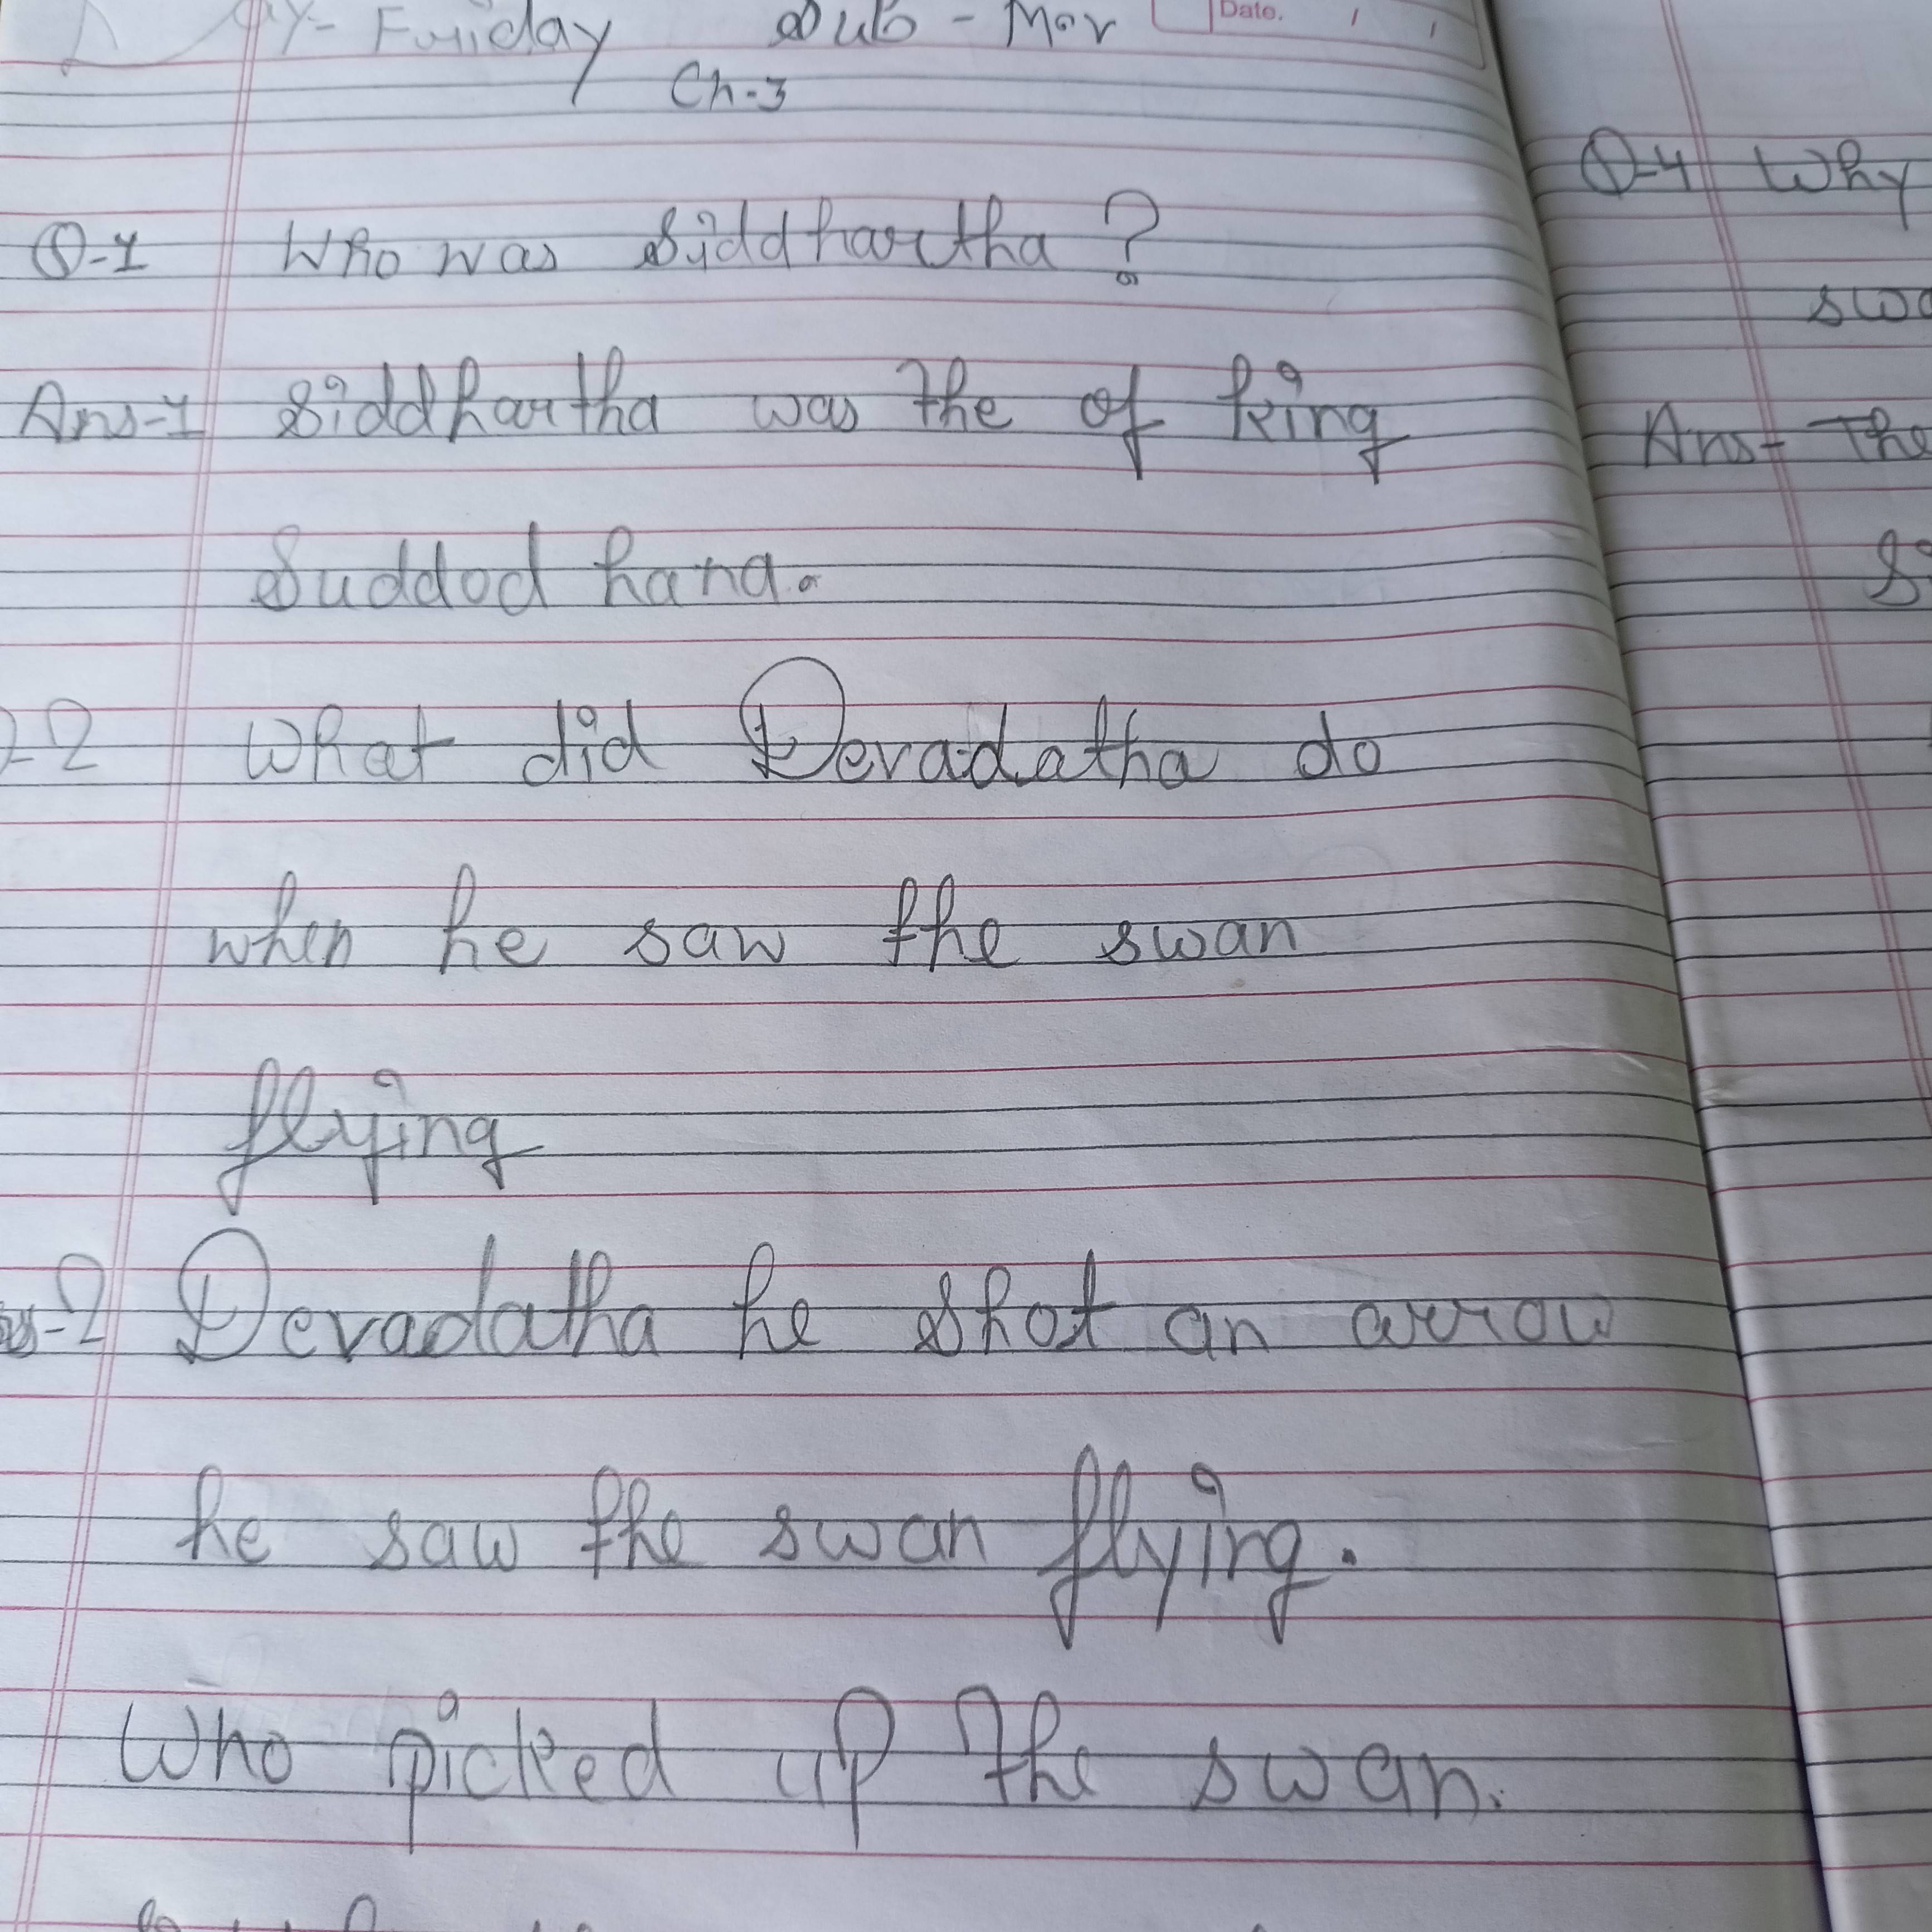 Friday Sub - Mor Date.
Ch-3
Q-1 Who was Siddhartha?
Ans-1 Siddhartha was the of king
Suddod hana.
-2 What did Devadatha do
when he saw the swan
flying
-2 Devadatha he shot an arrow
he saw the swan flying.
Who picked up the swan.
Q-4 Why
Ans- The